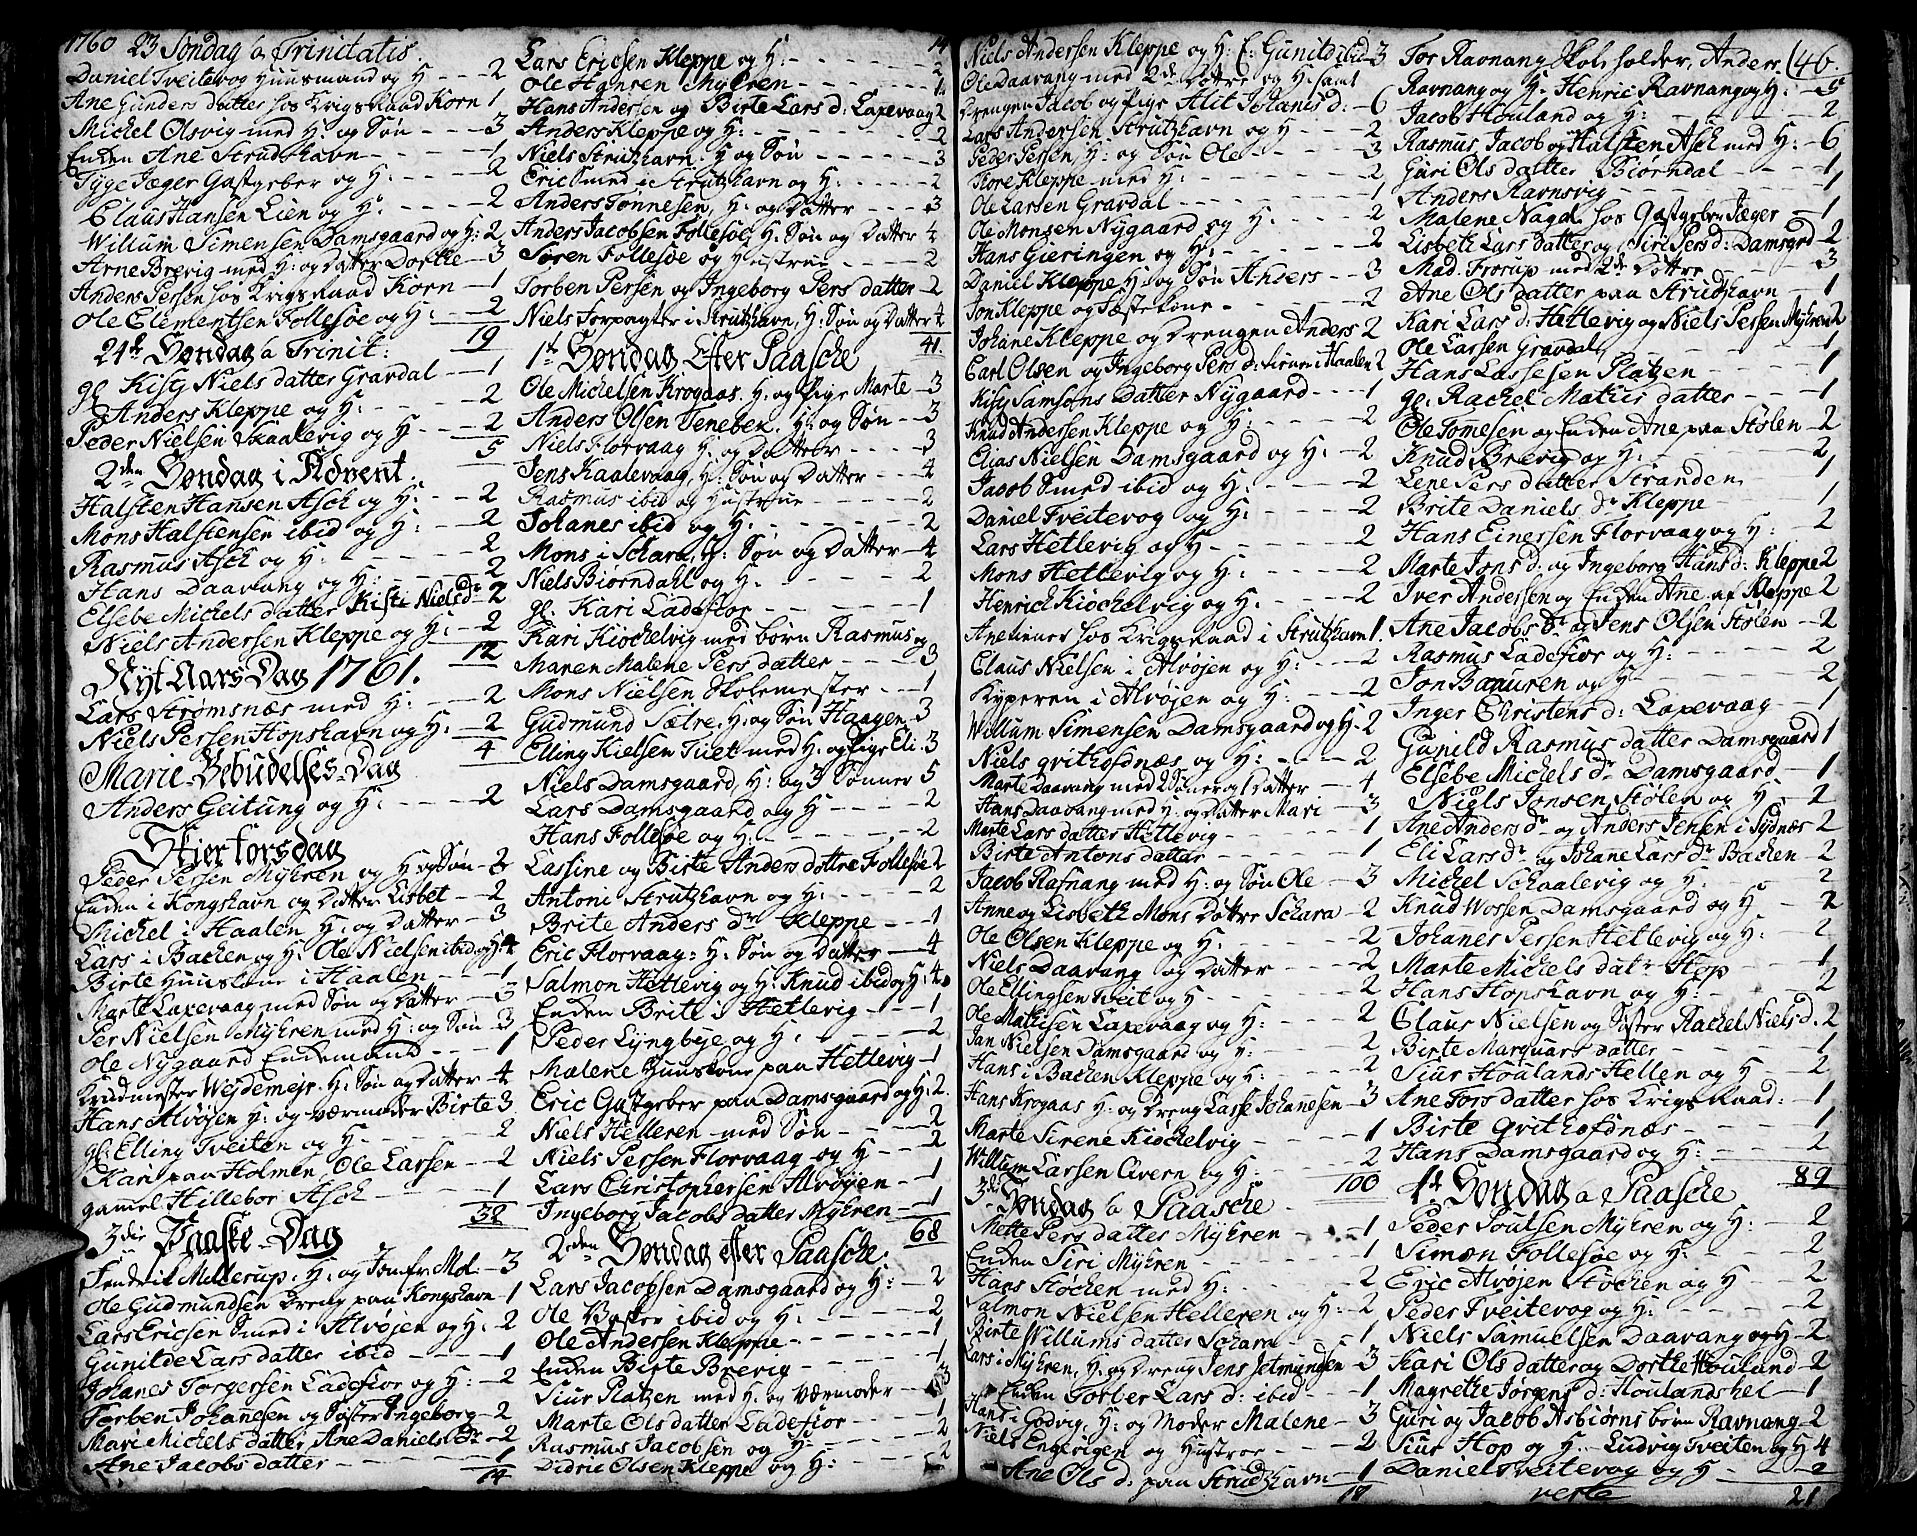 1760 23 Søndag a Trinitatis.
Daniel Tveitevog Huusmand og H - 2
Ane Gunders datter hos Krigsraad Korn 1
Michel Olsvig med H: og Søn - - - 3
Enden Ane Strudshavn - - - - 1
Tyge Jæger Gastgeber og H: - - 2
Claus Hansen Lien og H: - - - 2
Willum Simensen Damsgaard og H: 2
Arne Brevig med H: og Datter Dorthe - 3
Anders Persen hos Krigsraad Korn - 1
Ole Clementsen Follesøe og H: - - 2
19
24de Søndag a Trinit:
gl. Kisti Niels datter Gravdal - - - 1
Anders Kleppe og H: - - - - 2
Peder Nielsen Skaalevig og H - - 2
5
2den Søndag i Advent.
Halsten Hansen Ask og H: - - 2
Mons Halstensen ibid og H: - - 2
Rasmus Ask og H: - - - - 2
Hans Daavang og H: - - - - 2
Elsebe Michels datter Kisti Niels dr 2
Niels Andersen Kleppe og H: - - 2
12
Nyt Aars Dag 1761.
Lars Strømsnæs med H: - - - 2
Niels Persen Hopshavn og H: - - 2
4
Marie Bebudelses-Dag
Anders Geitung og H: - - - - 2
Skiertorsdag
Peder Persen Myhren og H: og Søn - 3
Enden i Kongshavn og Datter Lisbet - - 2
Michel i Haalen H: og Datter - - - 3
Lars i Bachen og H: Ole Nielsen ibid og H: 4
Birte Huuskone i Haalen - - - - 1
Marte Laxevaag med Søn og Datter - - 3
Per Nielsen Myhren med H: og Søn - 3
Ole Nygaard Enckemand - - - - 1
Krudmester Weydemejr: H: Søn og Datter - 4
Hans Alvøsen H: og Værmoder Birte 3
gl: Elling Tveiten og H - - - - 2
Kari paa Holmen, Ole Larsen - - 2
gamel Hillebor Ask - - - - 1
32
3die Paaske-Dag
Fendrik Mellerup: H: og Jomfr. Mol: - 3
Ole Gudmundsen Dreng paa Kongshavn 1
Lars Ericsen Smed i Alvøjen og H: - 2
Gunilde Lars datter ibid - - - - 1
Johanes Torgersen Ladefior og H: - 2
Torben Johanesen og Søster Ingeborg - 2
Mari Michels datter, Ane Daniels Dr - 2
Ane Jacobs datter - - - - - - 1
14
14
Lars Ericsen Kleppe og H: - - - - 2
Ole Hansen Myhren - - - - - 1
Hans Andersen og Birte Lars d: Laxevaag 2
Anders Kleppe og H: - - - - - 2
Niels Strutzhavn: H og Søn - - - - 3
Eric Smed i Strutzhavn og H: - - - 2
Anders Tønnesen, H: og Datter - - - 3
Anders Jacobsen Follesøe, H: Søn og Datter 4
Søren Follesøe og Hustrue - - - - 2
Torben Persen og Ingeborg Pers datter - 2
Niels Forpagter i Strutzhavn, H: Søn og Datter 4
41.
1te Søndag Efter Paasche
Ole Michelsen Krogaas: H: og Pige Marte - 3
Anders Olsen Tenebek: H: og Søn - - 3
Niels Florvaag H: og Datter - - - 3
Jens Kaalevaag, H: Søn og Datter - - 4
Rasmus ibid og Hustrue - - - - 2
Johanes ibid og H: - - - - - 2
Mons i Schare, H: Søn og Datter - - 4
Niels Biørndahl og H: - - - - 2
gl: Kari Ladefior - - - - - 1
Kari Kiøchelvig med børn Rasmus og
Maren Malene Pers datter - - - 3
Mons Nielsen Skolemester - - - 1
Gudmund Sætre: H: og Søn Haagen - 3
Elling Kielsen Tuet med H: og Pige Eli - 3
Niels Damsgaard, H: og 3 Sønner 5
Lars Damsgaard og H - - - - 2
Hans Follesøe og H: - - - - 2
Lassine og Birte Anders døttre Follesøe 2
Antoni Strutzhavn og H: - - - 2
Brite Anders dr Kleppe - - - - 1
Eric Florvaag: H: Søn og Datter - - 4
Salmon Hetlevig og H: Knud ibid og H: 4
Enden Brite i Hetlevig - - - - 1
Peder Lyngbye og H: - - - - 2
Malene Huuskone paa Hetlevig - - 1
Eric Gastgeber paa Damsgaard og H: 2
Niels Helleren med Søn - - - - 2
Niels Persen Florvaag og H - - - 2
Lars Christophersen Alvøjen - - - 1
Ingeborg Jacobs datter Myhren - - 1
68
2den Søndag efter Paasche.
Lars Jacobsen Damsgaard og H: - - 2
Ole Bøster ibid og H: - - - - 2
Ole Andersen Kleppe - - - - - 1
Enden Birte Brevig - - - - - 1
Siur Platzen med H: og Værmoder - - 3
Marte Ols datter Ladefior - - - 1
Rasmus Jacobsen og H: - - - - 2
Didric Olsen Kleppe og H: - - - 2
Niels Andersen Kleppe og H: E: Gunild ibid 3
Ole Daavang med 2de døttre og H: samt
Drengen Jacob og Pige Alit Johanis d: - 6
Lars Andersen Strutzhavn og H - - 2
Peder Persen H: og Søn Ole - - - 3
Tore Kleppe med H: - - - - - 2
Ole Larsen Gravdal - - - - - 1
Ole Monsen Nygaard og H: - - - 2
Hans Gieringen og H: - - - - 2
Daniel Kleppe H: og Søn Anders - - 3
Jon Kleppe og Fæstekone - - - - 2
Johane Kleppe og Drengen Anders 2
Carl Olsen og Ingeborg Pers d: i Haalen 2
Kisti Samsons datter Nygaard - - - 1
Knud Andersen Kleppe og H: - - - 2
Elias Nielsen Damsgaard og H: - - 2
Jacob Smed ibid og H: - - - - 2
Daniel Tveitevog og H: - - - - 2
Lars Hetlevig og H - - - - - 2
Mons Hetlevig og H: - - - - 2
Henrich Kiøchelvig og H: - - - 2
hos Krigsraad i Strutzhavn 1.
Claus Nielsen i Alvøjen og H: - - 2
Kyperen i Alvøjen og H: - - - 2
Willum Simensen Damsgaard og H: - 2
Niels qvithofdnæs og H: - - - 2
Marte Daavang med 2 Sønner og 1 Datter - 4
Hans Daavang med H: og datter Mari - 3
Marte Lars datter Hetlevig - - - - 1
Birte Antons datter - - - - - 1
Jacob Rafnang med H: og Søn Ole - - 3
Anne og Lisbeth Mons Døttre Schara - 2
Ole Olsen Kleppe og H: - - - - 2
Niels Daavang og Datter - - - - 2
Ole Ellingsen Tveit og H - - - - 2
Ole Mathisen Laxevaag og H: - - - 2
Jan Nielsen Damsgaard og H: - - - 2
Hans i Bachen Kleppe og H: - - - 2
Hans Krogaas H: og Dreng Lasse Johanesen - 3
Marte Sirene Kiøchelvig - - - - 1
Willum Larsen Civern og H: - - - 2
100
3die Søndag a Paasche
Mette Pers datter Myhren - - - 1
Enden Siri Myhren - - - - - 1
Hans Støchen med H: - - - - 2
Salmon Nielsen Helleren og H: - - 2
Birte Willums datter Schara - - - 1
Lars i Myhren, H: og Dreng Jens Jetmundsen 3
Enden Torber Lars d: ibid - - - 1
Hans i Godvig, H: og Moder Malene - 3
Niels Engevigen og Hustroe - - - 2
Ane Ols d: paa Strudzhavn - - 1
17
46.
Tor Ravnang Skoleholder, Anders
Ravnang og H: Henric Ravnang og H: - 5
Jacob Houland og H: - - - - 2
Rasmus, Jacob og Halsten Ask med H: - 6
Guri Ols datter Biørndal - - - 1
Anders Ravnsvig - - - - - 1
Malene Nagel hos Gastgeber Jæger - 1
Lisbeth Lars datter og Siri Pers d: Damsgrd 2
Mad: Frorup med 2de Døttre - - - 3
Ane Ols datter paa Strudzhavn - - 1
Kari Lars d: Hettevig og Niels Persen Myhren 2
Ole Larsen Gravdal - - - - - 1
Hans Lassesen Platzen - - - - 1
gl. Rachel Mathis datter - - - 1
Ole Tomesen og Enden Ane paa Stølen - 2
Knud Brevig og H: - - - - - 2
Lene Pers datter Stranden - - - 1
Brite Daniels dr Kleppe - - - - 1
Hans Einersen Florvaag og H: - - 2
Marte Jons d: og Ingeborg Hans d: Kleppe 2
Iver Andersen og Enden Ane af Kleppe 2
Ane Jacobs Dr og Jens Olsen Stølen - - 2
Rasmus Ladefior og H: - - - - 2
Jon Banuren og H - - - - - 2
Inger Christens d: Laxevaag - - - 1
Gunild Rasmus datter Damsgaard 1
Elsebe Michels dr Damsgaard - - 1
Niels Jonsen Stølen og H: - - 2
Ane Anders dr og Anders Jensen i Sydnæs 2
Eli Lars dr og Johane Lars dr Bachen - 2
Michel Schaalevig og H: - - - 2
Knud Wossen Damsgaard og H - - 2
Johanes Persen Hetlevig og H: - - 2
Marte Michels datr Hop - - - - 1
Hans Hopshavn og H: - - - - 2
Claus Nielsen og Søster Rachel Niels d. 2
Birte Marquars datter - - - - 1
Siur Houlands Hellen og H - - - 2
Ane Tors datter hos Krigs Raad: - 1
Birte qvithofdnæs - - - - - 1
Hans Damsgaard og H: - - - - 2
89
4te Søndag a Paasche
Peder Poulsen Myhren og H: - - 2
Simon Follesøe og H: - - - - 2
Eric Alvøjen Støchen og H - - - 2
Peder Tveitevog og H: - - - - 2
Niels Samuelsen Daavang og H - 2
Kari Ols datter og Dorthe Houland - 2
Magrethe Jørgens d: Houlandshel - 1
Guri og Jacob Asbiørns børn Ravnang - 2
Siur Hop og H: Ludvig Tveiten og H 4
Daniel Tveitevog og H - - - - 2
verte 21